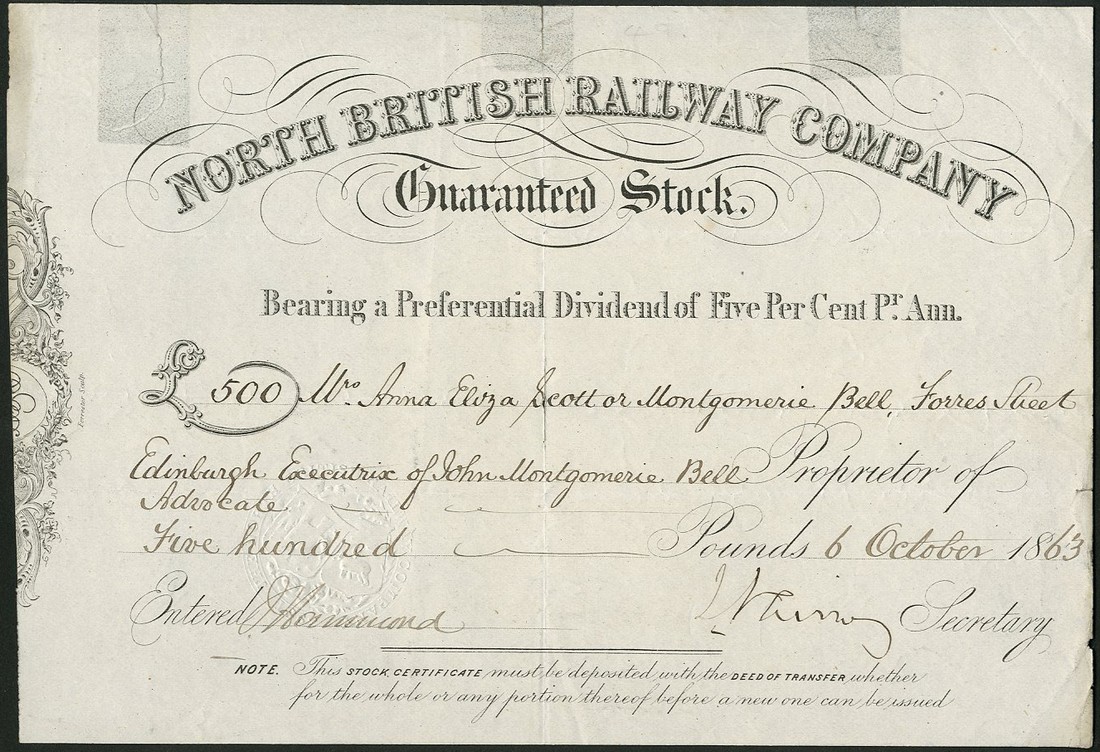 NORTH BRITISH RAILWAY COMPANY
Guaranteed Stock.
Bearing a Preferential Dividend of Five Per Cent Pr. Ann.
£ 500 Mrs. Anna Eliza Scott or Montgomerie Bell, Forres Street
Edinburgh Executrix of John Montgomerie Bell Proprietor of
Advocate
Five hundred Pounds 6 October 1863
Entered Secretary
NOTE. This STOCK CERTIFICATE must be deposited with the DEED OF TRANSFER whether
for the whole or any portion thereof before a new one can be issued